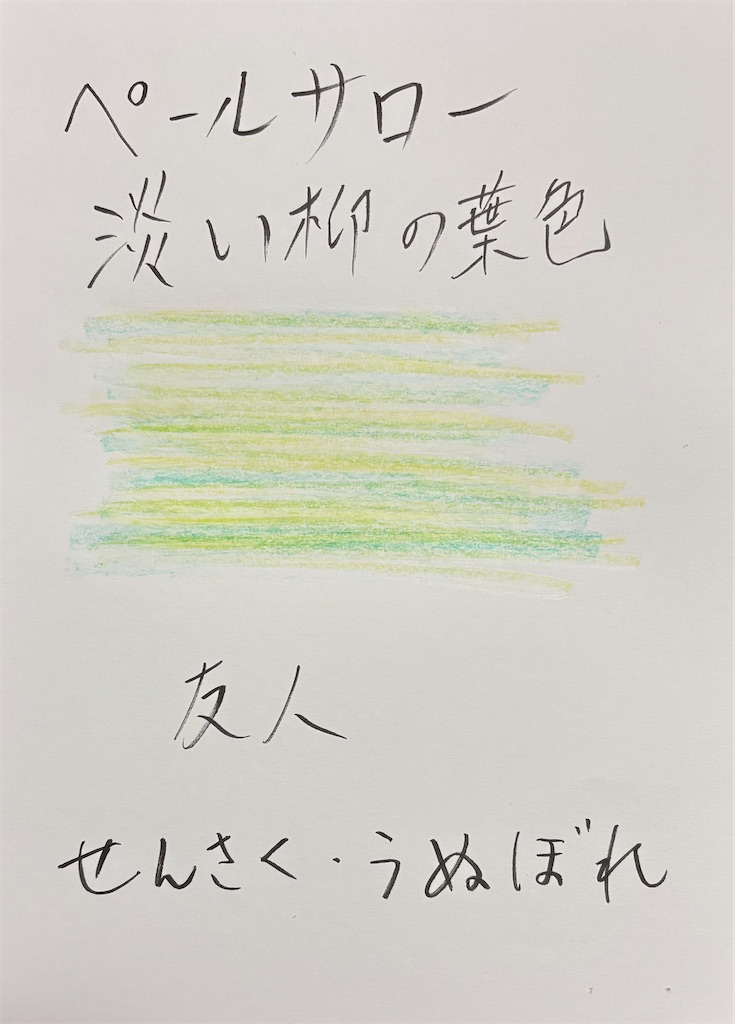 ペールサロー
淡い柳の葉色
友人
せんさく・うぬぼれ